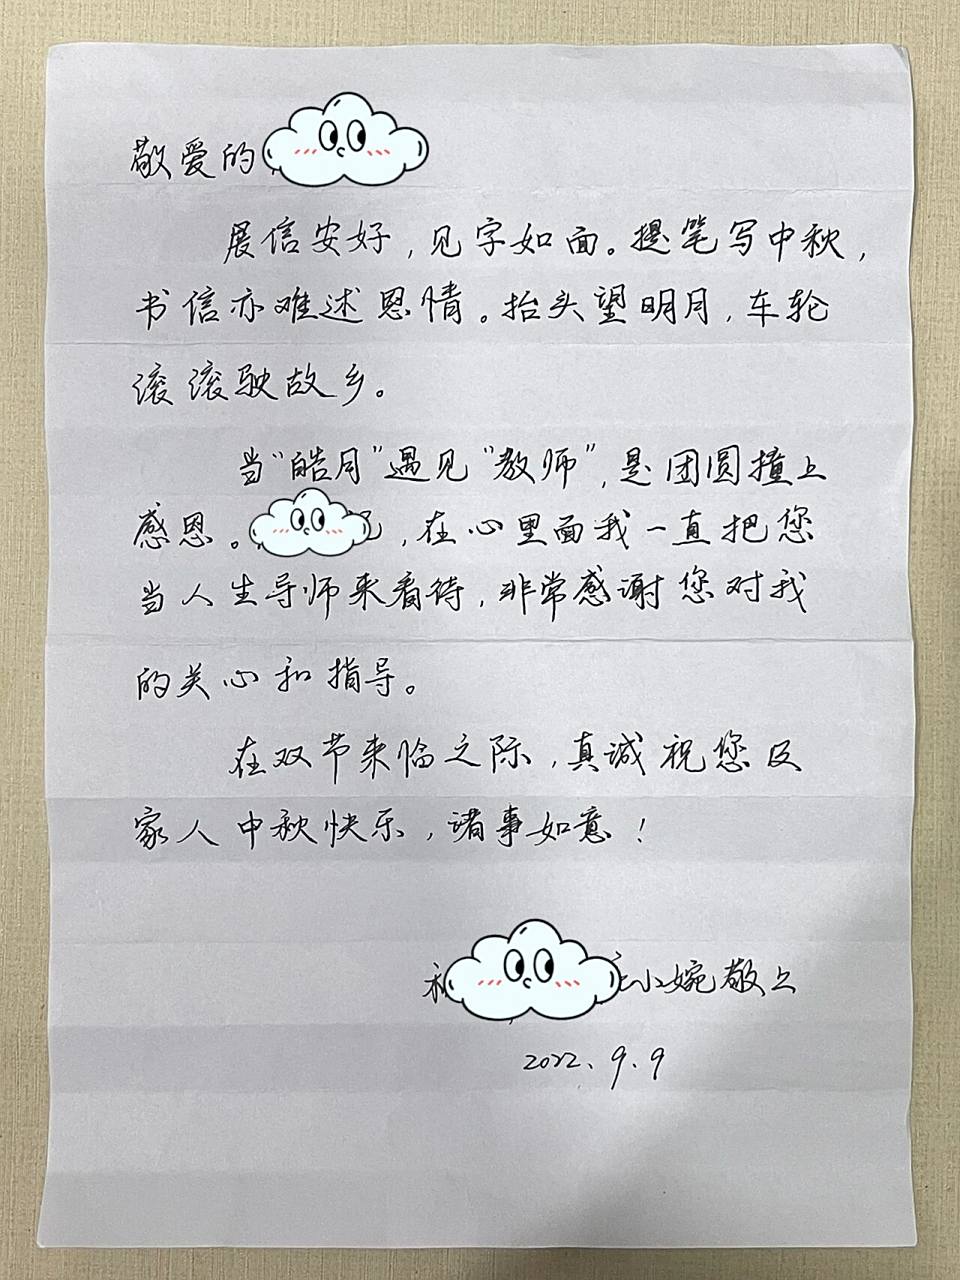 敬爱的
展信安好,见字如面。提笔写中秋,
书信亦难述恩情。抬头望明月,车轮
滚滚驶故乡。
当“皓月”遇见“教师”,是团圆撞上
感恩。 ,在心里面我一直把您
当人生导师来看待,非常感谢您对我
的关心和指导。
在双节来临之际,真诚祝您及
家人中秋快乐,诸事如意!
小婉敬上
2022、9、9